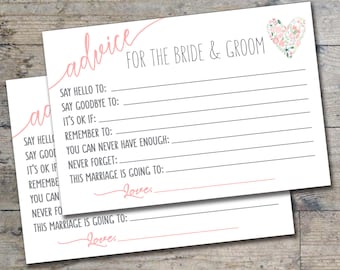 advice
FOR THE BRIDE & GROOM
SAY HELLO TO:
SAY GOODBYE TO:
IT'S OK IF:
REMEMBER TO:
YOU CAN NEVER HAVE ENOUGH:
NEVER FORGET:
THIS MARRIAGE IS GOING TO:
Love,
advice
SAY HELLO
SAY GOODB
IT'S OK IF:
REMEMBER
YOU CAN N
NEVER FORGET:
THIS MARRIAGE IS GOING TO:
Love,